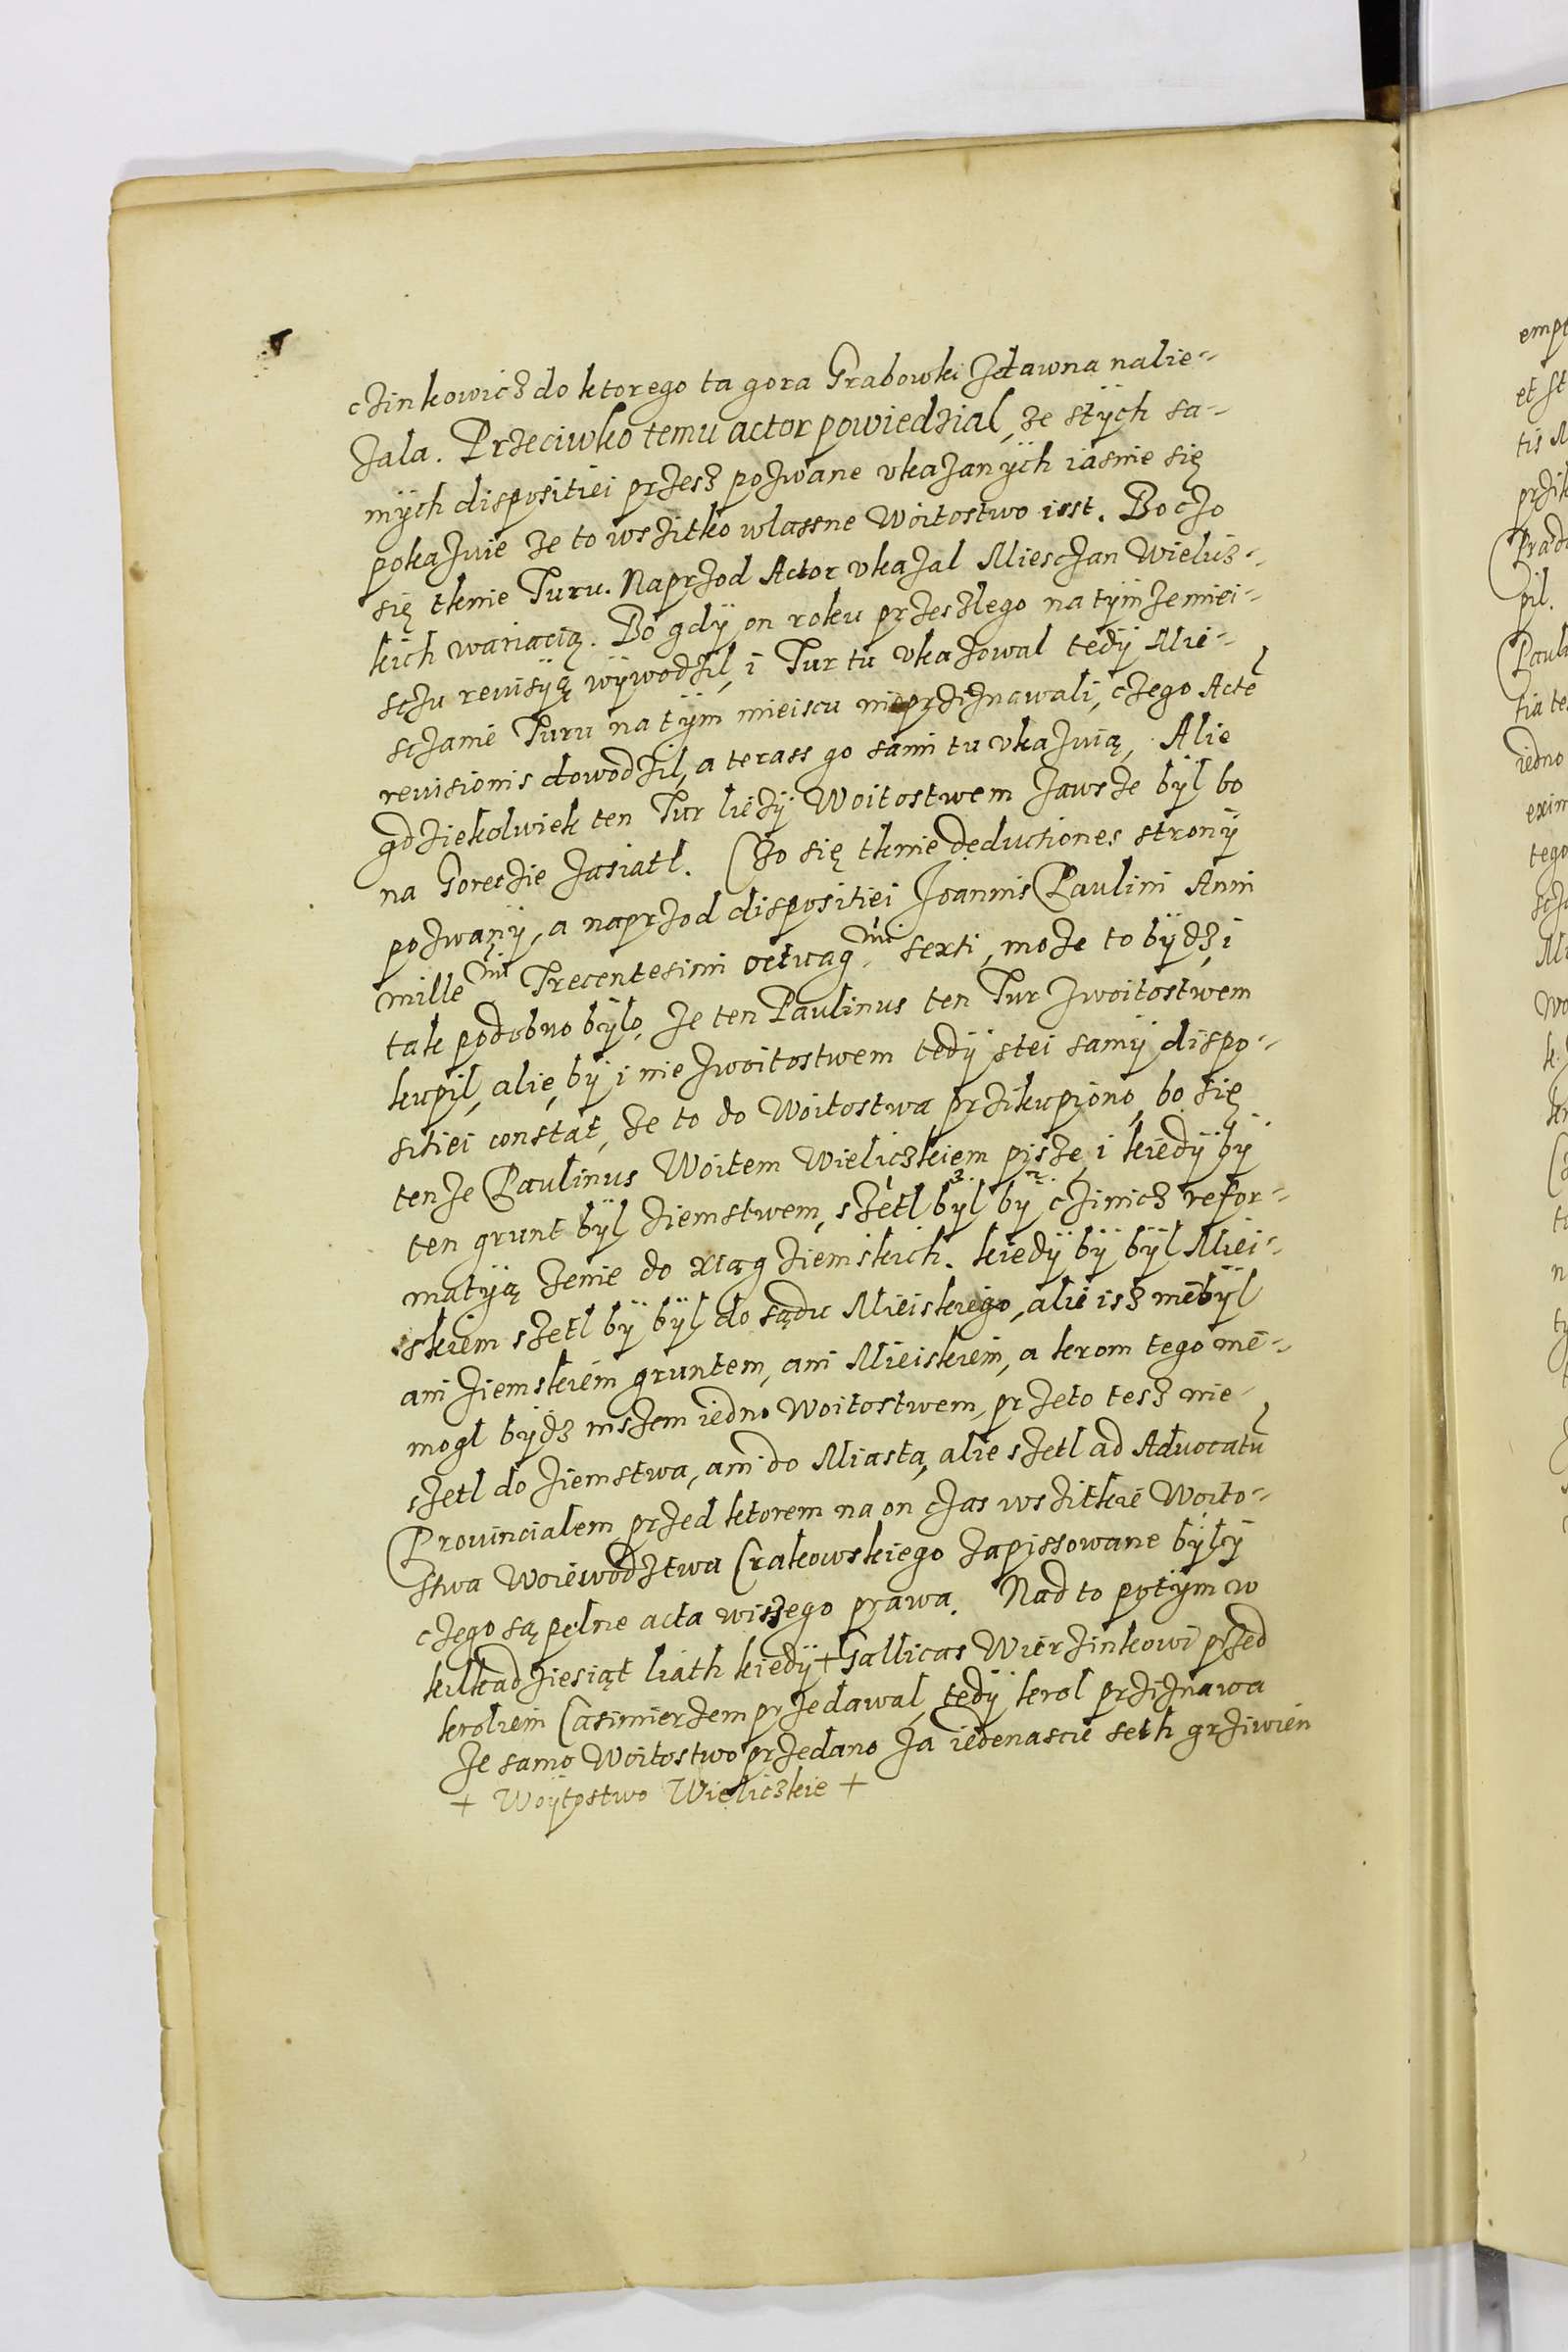 czinkowicz do ktorego ta gora Grabowki zdawna nalie-
zala. Przeciwko temu actor powiedzial, ze stÿch sa-
mÿch dispositiei przesz pozwane vkazanÿch iasnie się
pokazuie ze to wszitko wlassne Woitostwo isst. Bo czo
się tknie Turu. Naprzod Actor vkazal Miesczan Wielicz-
kich wariacią. Bo gdÿ on roku przeszlego na tÿmze miei-
sczu reuisÿą wÿwodzil, i Tur tu vkazowal tedÿ Mie-
sczanie Turu na tÿm mieiscu nieprziznawali, czego Acte
reuisionis dowodzil, a terass go sami tu vkazuią, Alie
gdziekolwiek ten Tur liezÿ Woitostwem zawsze bÿl bo
na Goreczie zasiatl. Czo się tknie deductiones stronÿ
pozwanÿ, a naprzod dispositiei Joannis Paulini Anni
mille mi Trecentesimi octuag mi sexti, moze to bÿdz, i
tak podobno bÿlo, ze ten Paulinus ten Tur zwoitostwem
kupil, alie, bÿ i nie zwoitostwem tedÿ stei samÿ dispo-
sitiei constat, ze to do Woitostwa przikupiono, bo się
tenze Paulinus Woitem Wieliczkiem pisze, i kiedÿ bÿ
ten grunt bÿl ziemstwem, szetl bÿl bÿ czinicz refor-
matÿą zenie do xiąg ziemskich. kiedÿ bÿ bÿl Miei-
skiem szetl bÿ bÿl do sądu Mieiskiego, alie isz niebÿl
ani ziemskiem gruntem, ani Mieiskiem, a krom tego nie-
mogl bÿdz inszem iedno Woitostwem, przeto tesz nie-
szetl do ziemstwa, ani do Miasta, alie szetl ad Aduocatu
Prouincialem przed ktorem na on czas wszitkie Woito-
stwa Woiewodztwa Crakowskiego zapissowane bÿlÿ
czego są pelne acta wiszego prawa. Nad to potÿm w
kilkadziesiąt liath kiedÿ + Gallicas Wierzinkowi przed
kroliem Casimierzem przedawal, tedÿ krol prziznawa
ze samo Woitostwo przedano za iedenascie seth grziwien
+ Woÿtostwo Wieliczkie +